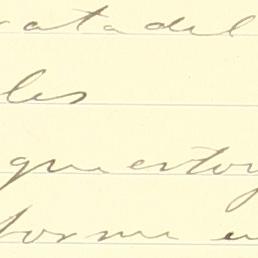 ata del
les
que estoy
forme en